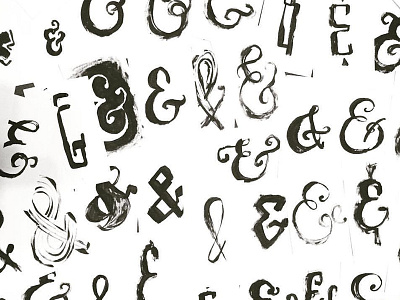 & & & & & &
& & & & & & &
& & & & &
& & & & & & & &
& & & & & & &